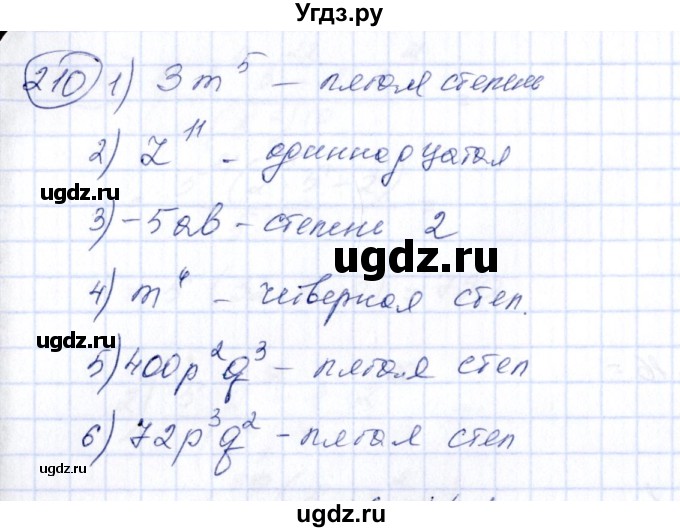 Угдз.ру
210 1) 3m⁵ – пятая степень
2) z¹¹ – одиннадцатая
ugdz.ru
3) –5ab – степень 2
ugdz.ru
4) m⁴ – четверная степ.
ugdz.ru
5) 400p²q³ – пятая степ
6) 72p³q² – пятая степ
ugdz.ru
Угдз.ру